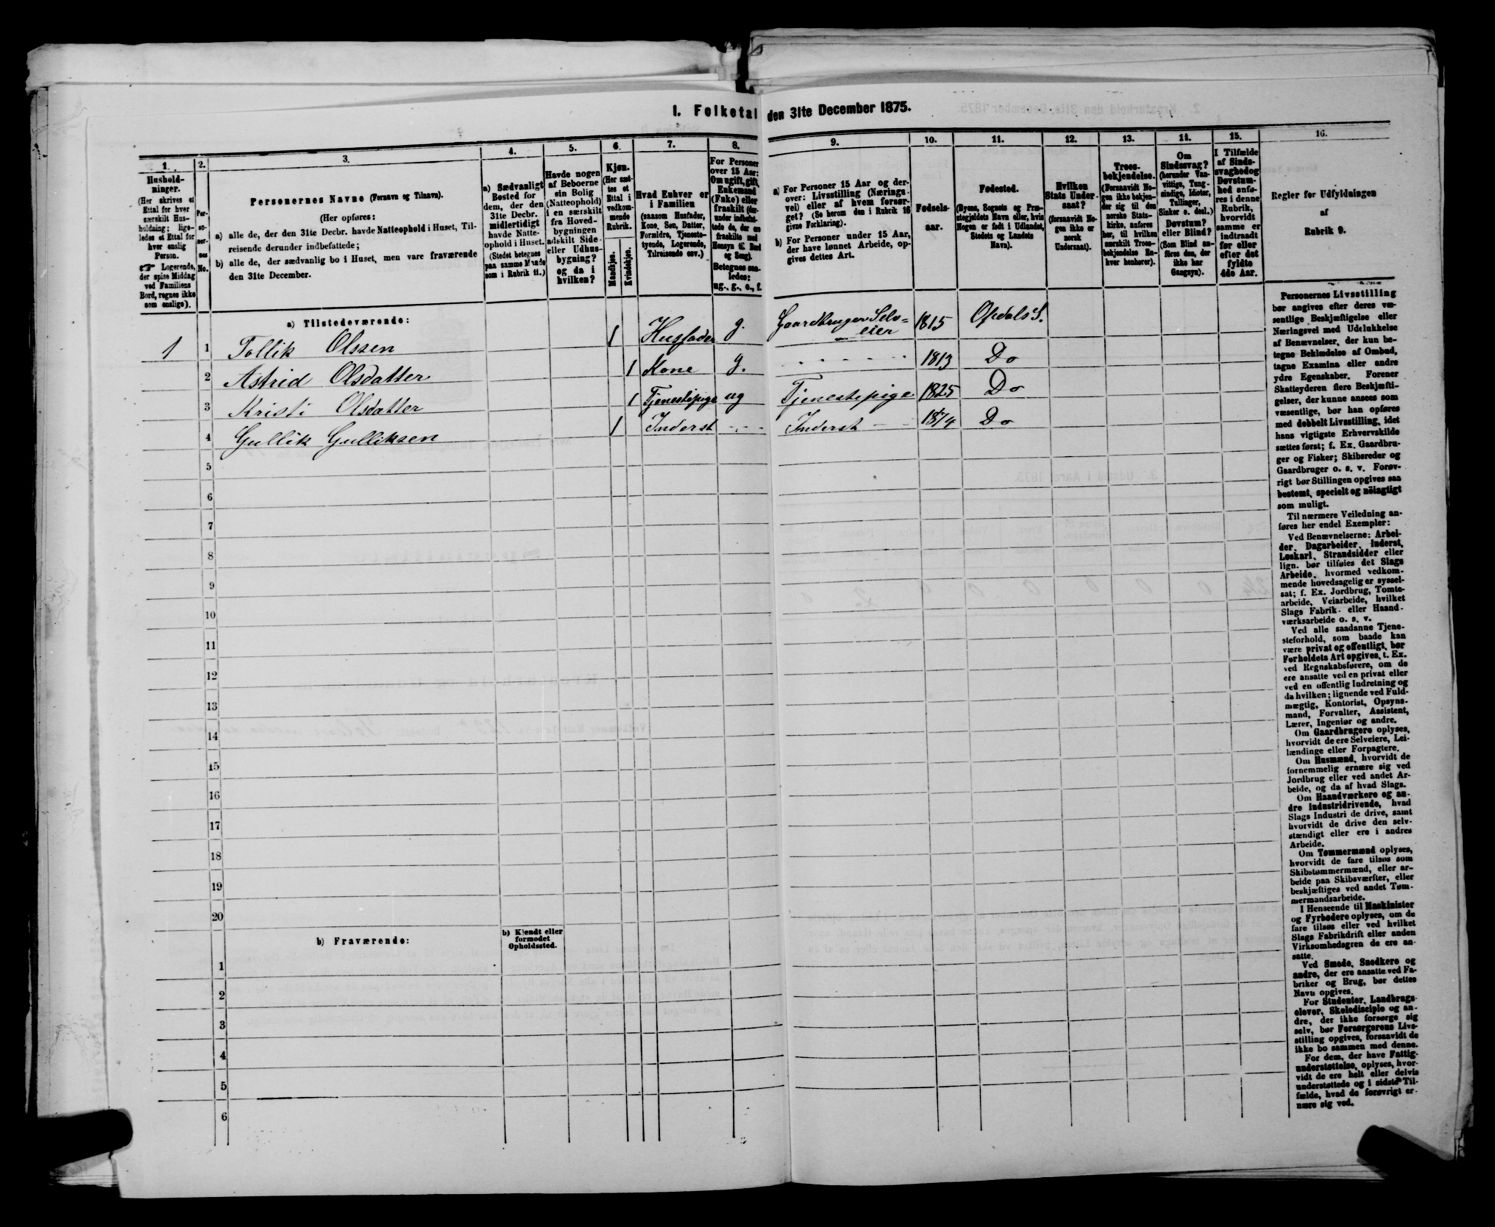 I. Folketal den 31te December 1875.
1. 2. 3. 4. 5. 6. 7. 8. 9. 10. 11. 12. 13. 14. 15. 16.
Hushold-
ninger.
(Her skrives et
Ettal for hver
særskilt Hus-
holdning; lige-
ledes et Ettal for
hver enslig
Person.
☞ Logerende,
der spise Middag
ved Familiens
Bord, regnes ikke
som enslige).
Per-
soner-
nes
No.
Personernes Navne (Fornavn og Tilnavn).
(Her opføres:
a) alle de, der den 31te Decbr. havde Natteophold i Huset, Til-
reisende derunder indbefattede;
b) alle de, der sædvanlig bo i Huset, men vare fraværende
den 31te December.
a) Sædvanligt
Bosted for
dem, der den
31te Decbr.
midlertidigt
havde Natte-
ophold i Huset.
(Stedet betegnes
paa samme Maade
som i Rubrik 11.)
Havde nogen
af Beboerne
sin Bolig
(Natteophold)
i en særskilt
fra Hoved-
bygningen
adskilt Side-
eller Udhus-
bygning?
og da i
hvilken?
Kjøn.
(Her sæt-
tes et
Ettal i
vedkom-
mende
Rubrik.
Mandkjøn.
Kvindekjøn.
Hvad Enhver er
i Familien
(saasom Husfader,
Kone, Søn, Datter,
Forældre, Tjeneste-
tyende, Logerende,
Tilreisende osv.)
For Personer
over 15 Aar:
Om ugift, gift,
Enkemand
(Enke) eller
fraskilt
Betegnes saa-
ledes:
ug., g., e., f.
a) For Personer 15 Aar og der-
over: Livsstilling (Nærings-
vei) eller af hvem forsør-
get? (Se herom den i Rubrik 16
givne Forklaring).
b) For Personer under 15 Aar,
der have lønnet Arbeide, op-
gives dettes Art.
Fødsels-
aar.
Fødested.
(Byens, Sognets og Præ-
stegjeldets Navn eller, hvis
Nogen er født i Udlandet,
Stedets og Landets
Navn).
Hvilken
Stats Under-
saat?
(forsaavidt No-
gen ikke er
norsk
Undersaat).
Troes-
bekjendelse.
(Forsaavidt No-
gen ikke bekjen-
der sig til den
norske Stats-
kirke, anføres
her, til hvilken
anerkjendt Troes-
bekjendelse En-
hver henhører).
Om
Sindssvag?
(herunder Van-
vittige, Tung-
sindige, Idioter,
Tullinger,
Sinker o. desl.)
Døvstum?
eller Blind?
(Som Blind an-
føres den, der
ikke har
Gangsyn).
I Tilfælde
af Sinds-
svaghed og
Døvstum-
hed anfø-
res i denne
Rubrik,
hvorvidt
samme er
indtraadt
før eller
efter det
fyldte
4de Aar.
Regler for Udfyldningen
af
Rubrik 9.
a) Tilstedeværende:
1 1 Tollik Olssen 1 Husfader g. Gaardbruger Selv=eier 1815 Opdals S.
2 Astrid Olsdatter 1 Kone g. 1813 Do
3 Kristi Olsdatter 1 Tjenestepige ug Tjenestepige 1825 Do
4 Gullik Gulliksen 1 Inderst Inderst 1874 Do
5
6
7
8
9
10
11
12
13
14
15
16
17
18
19
20
b) Fraværende:
b) Kjendt eller
formodet
Opholdssted.
1
2
3
4
5
6
Personernes Livsstilling
bør angives efter deres væ-
sentlige Beskjæftigelse eller
Næringsvei med Udelukkelse
af Benævnelser, der kun be-
tegne Beklædelse af Ombud,
tagne Examina eller andre
ydre Egenskaber. Forener
Skatteyderen flere Beskjæfti-
gelser, der kunne ansees som
væsentlige, bør han opføres
med dobbelt Livsstilling, idet
hans vigtigste Erhvervskilde
sættes først; f. Ex. Gaardbru-
ger og Fisker; Skibsreder og
Gaardbruger o. s. v. Forøv-
rigt bør Stillingen opgives saa
bestemt, specielt og nøiagtigt
som muligt.
Til nærmere Veiledning an-
føres her endel Exempler:
Ved Benævnelserne: Arbei-
der, Dagarbeider, Inderst,
Løskarl, Strandsidder eller
lign. bør tilføies det Slags
Arbeide, hvormed vedkom-
mende hovedsagelig er syssel-
sat; f. Ex. Jordbrug, Tomte-
arbeide, Veiarbeide, hvilket
Slags Fabrik- eller Haand-
værksarbeide o. s. v.
Ved alle saadanne Tjene-
steforhold, som baade kan
være privat og offentligt, bør
Forholdets Art opgives, f. Ex.
ved Regnskabsførere, om de
ere ansatte ved en privat eller
ved en offentlig Indretning og
da hvilken; lignende ved Fuld-
mægtig, Kontorist, Opsyns-
mand, Forvalter, Assistent,
Lærer, Ingeniør og andre.
Om Gaardbrugere oplyses,
hvorvidt de ere Selveiere, Lei-
lændinge eller Forpagtere.
Om Husmænd, hvorvidt de
fornemmelig ernære sig ved
Jordbrug eller ved andet Ar-
beide, og da af hvad Slags.
Om Haandværkere og an-
dre Industridrivende, hvad
Slags Industri de drive, samt
hvorvidt de drive den selv-
stændigt eller ere i andres
Arbeide.
Om Tømmermænd oplyses,
hvorvidt de fare tilsøs som
Skibstømmermænd, eller ar-
beide paa Skibsværfter, eller
beskjæftiges ved andet Tøm-
mermandsarbeide.
I Henseende til Maskinister
og Fyrbødere oplyses, om de
fare tilsøs eller ved hvilket
Slags Fabrikdrift eller anden
Virksomhedsgren de ere an-
satte.
Ved Smede, Snedkere og
andre, der ere ansatte ved Fa-
briker og Brug, bør dettes
Navn opgives.
For Studenter, Landbrugs-
elever, Skoledisciple og an-
dre, der ikke forsørge sig
selv, bør Forsørgerens Livs-
stilling opgives, forsaavidt de
ikke bo sammen med denne.
For dem, der have Fattig-
understøttelse, oplyses, hvor-
vidt de ere helt eller delvis
understøttede og i sidste Til-
fælde, hvad de forøvrigt er-
nære sig ved.